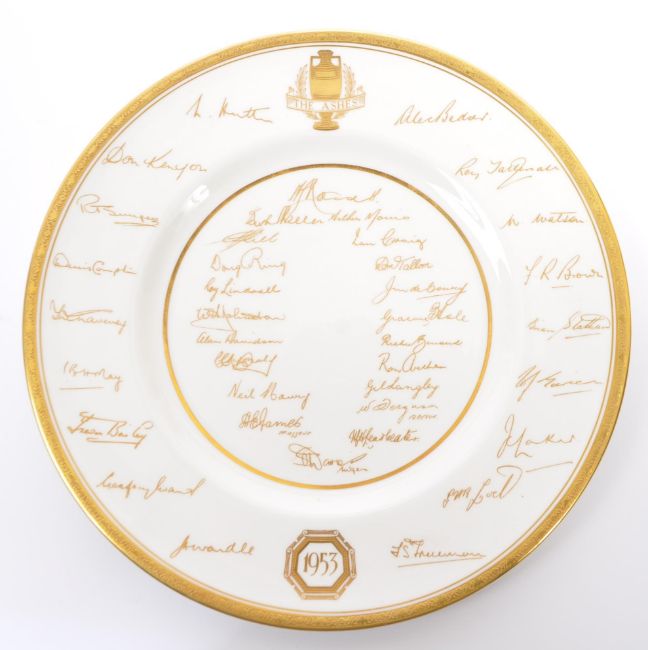 THE ASHES
L. Hutton
Alec Bedser
Don Kenyon
Roy Tattersall
R T Simpson
W Watson
Denis Compton
F R Brown
T W Graveney
Brian Statham
Trevor Bailey
J C Laker
G A R Lock
J H Wardle
F S Trueman
Arthur Morris
Ian Craig
Doug Ring
Don Tallon
Ray Lindwall
Jim de Courcy
W A Johnston
Graeme Hole
Alan Davidson
Richie Benaud
Ron Archer
Neil Harvey
Gil Langley
W Ferguson
scorer
A E James
masseur
1953